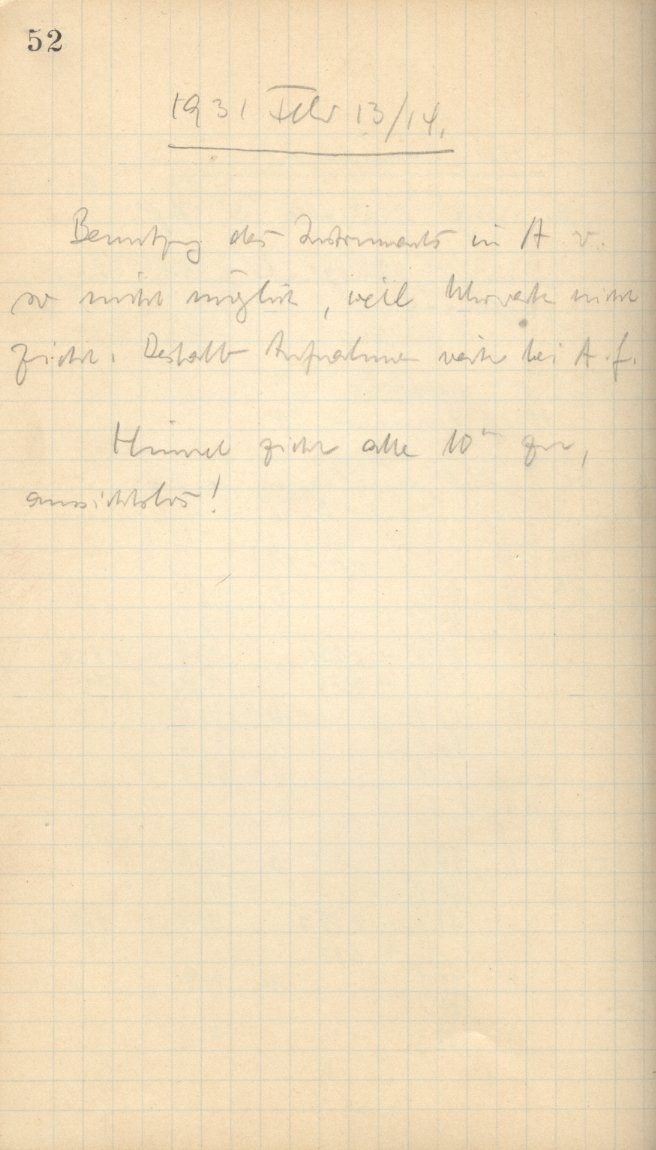 52
1931 Febr 13/14.
Benutzung des Instruments in A v.
so nicht möglich, weil Uhrwerk nicht
zieht. Deshalb Aufnahmen bei A.f.
Himmel zieht alle 10ᵐ zu,
aussichtslos!